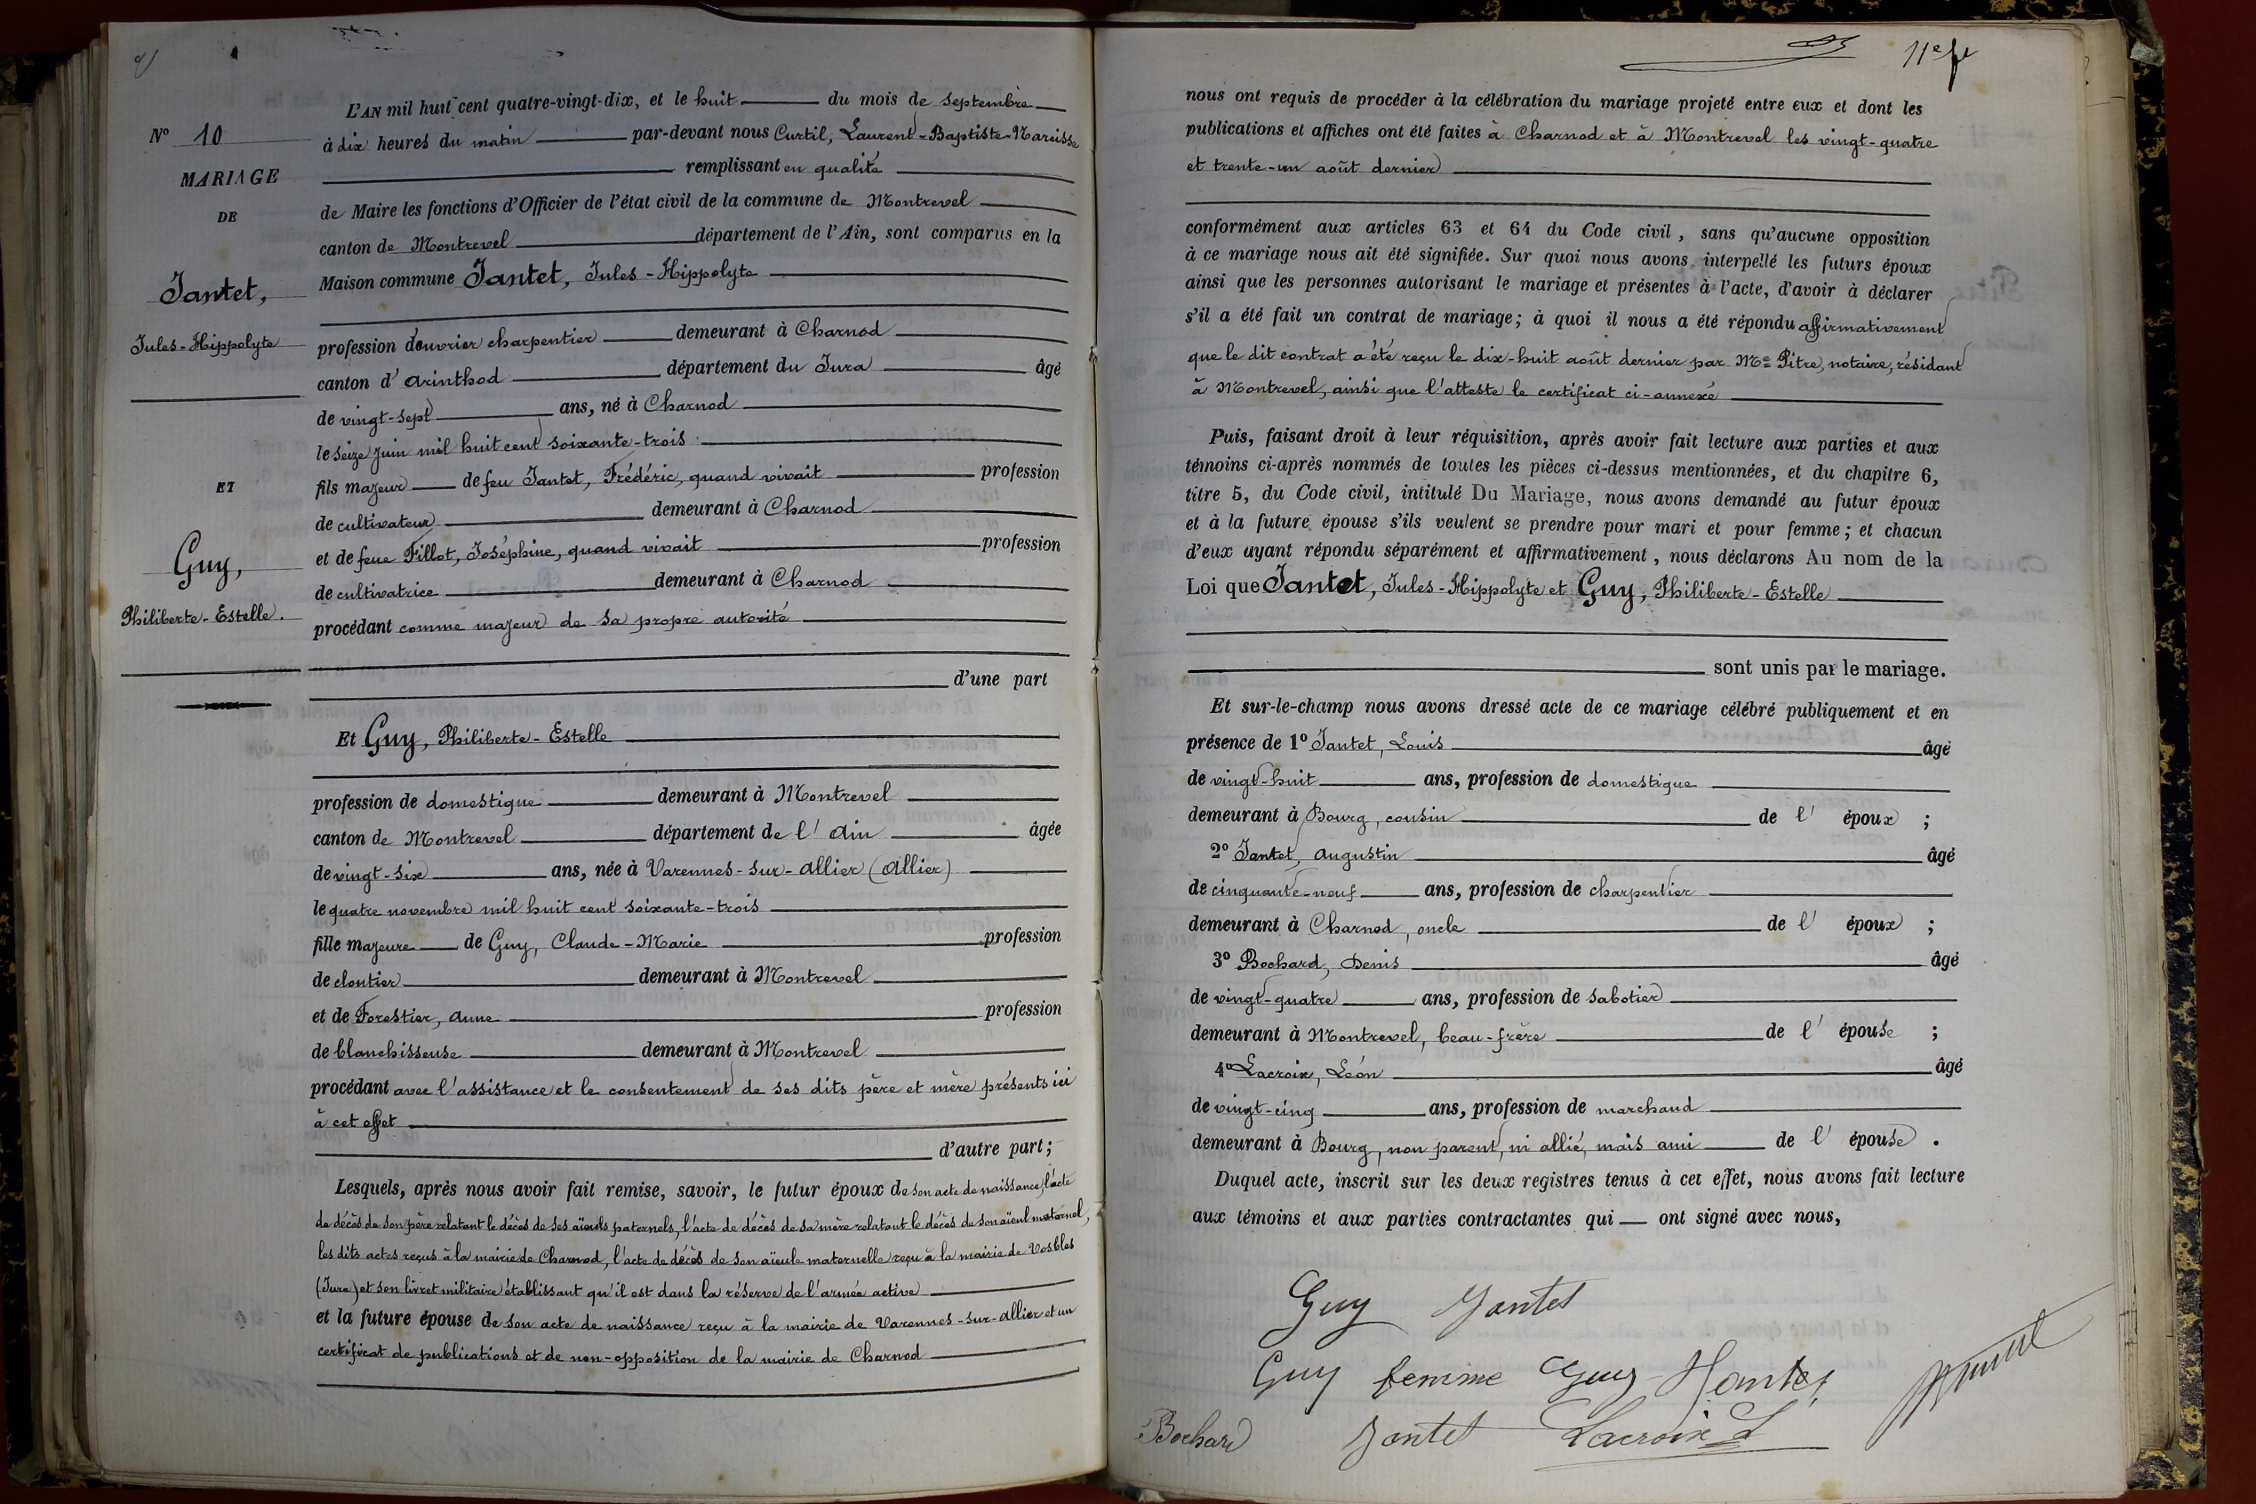 L'AN mil huit cent quatre-vingt-dix, et le huit du mois de septembre
N° 10
à dix heures du matin par-devant nous Curtil, Laurent-Baptiste-Narcisse
MARIAGE
remplissant en qualité
DE
de Maire les fonctions d'Officier de l'état civil de la commune de Montrevel
canton de Montrevel département de l'Ain, sont comparus en la
Jantet,
Maison commune Jantet, Jules-Hippolyte
Jules-Hippolyte
profession d'ouvrier charpentier demeurant à Charnod
canton d'Arinthod département du Jura âgé
de vingt-sept ans, né à Charnod
le seize juin mil huit cent soixante-trois
ET
fils majeur de feu Jantet, Frédéric, quand vivait profession
de cultivateur demeurant à Charnod
Guy,
et de feue Fillot, Joséphine, quand vivait profession
de cultivatrice demeurant à Charnod
Philiberte-Estelle.
procédant comme majeur de sa propre autorité
d'une part
Et Guy, Philiberte-Estelle
profession de domestique demeurant à Montrevel
canton de Montrevel département de l'Ain âgée
de vingt-six ans, née à Varennes-sur-Allier (Allier)
le quatre novembre mil huit cent soixante-trois
fille majeure de Guy, Claude-Marie profession
de cloutier demeurant à Montrevel
et de Forestier, Anne profession
de blanchisseuse demeurant à Montrevel
procédant avec l'assistance et le consentement de ses dits père et mère présents ici
à cet effet
d'autre part;
Lesquels, après nous avoir fait remise, savoir, le futur époux de son acte de naissance, l'acte
de décès de son père relatant le décès de ses aïeuls paternels, l'acte de décès de sa mère relatant le décès de son aïeul maternel,
les dits actes reçus à la mairie de Charnod, l'acte de décès de son aïeule maternelle reçu à la mairie de Vosbles
(Jura) et son livret militaire établissant qu'il est dans la réserve de l'armée active
et la future épouse de son acte de naissance reçu à la mairie de Varennes-sur-Allier et un
certificat de publications et de non-opposition de la mairie de Charnod
11e
nous ont requis de procéder à la célébration du mariage projeté entre eux et dont les
publications et affiches ont été faites à Charnod et à Montrevel les vingt-quatre
et trente-un août dernier
conformément aux articles 63 et 64 du Code civil, sans qu'aucune opposition
à ce mariage nous ait été signifiée. Sur quoi nous avons interpellé les futurs époux
ainsi que les personnes autorisant le mariage et présentes à l'acte, d'avoir à déclarer
s'il a été fait un contrat de mariage; à quoi il nous a été répondu affirmativement
que le dit contrat a été reçu le dix-huit août dernier par Me Pitre, notaire, résidant
à Montrevel, ainsi que l'atteste le certificat ci-annexé
Puis, faisant droit à leur réquisition, après avoir fait lecture aux parties et aux
témoins ci-après nommés de toutes les pièces ci-dessus mentionnées, et du chapitre 6,
titre 5, du Code civil, intitulé Du Mariage, nous avons demandé au futur époux
et à la future épouse s'ils veulent se prendre pour mari et pour femme; et chacun
d'eux ayant répondu séparément et affirmativement, nous déclarons Au nom de la
Loi que Jantet, Jules-Hippolyte et Guy, Philiberte-Estelle
sont unis par le mariage.
Et sur-le-champ nous avons dressé acte de ce mariage célébré publiquement et en
présence de 1° Jantet, Louis âgé
de vingt-huit ans, profession de domestique
demeurant à Bourg, cousin de l'époux;
2° Jantet, Augustin âgé
de cinquante-neuf ans, profession de charpentier
demeurant à Charnod, oncle de l'époux;
3° Bochard, Denis âgé
de vingt-quatre ans, profession de sabotier
demeurant à Montrevel, beau-frère de l'épouse;
4° Lacroix, Léon âgé
de vingt-cinq ans, profession de marchand
demeurant à Bourg, non parent, ni allié, mais ami de l'épouse.
Duquel acte, inscrit sur les deux registres tenus à cet effet, nous avons fait lecture
aux témoins et aux parties contractantes qui ont signé avec nous,
Guy Jantet
Guy femme Guy Jantet
Bochard Jantet Lacroix L